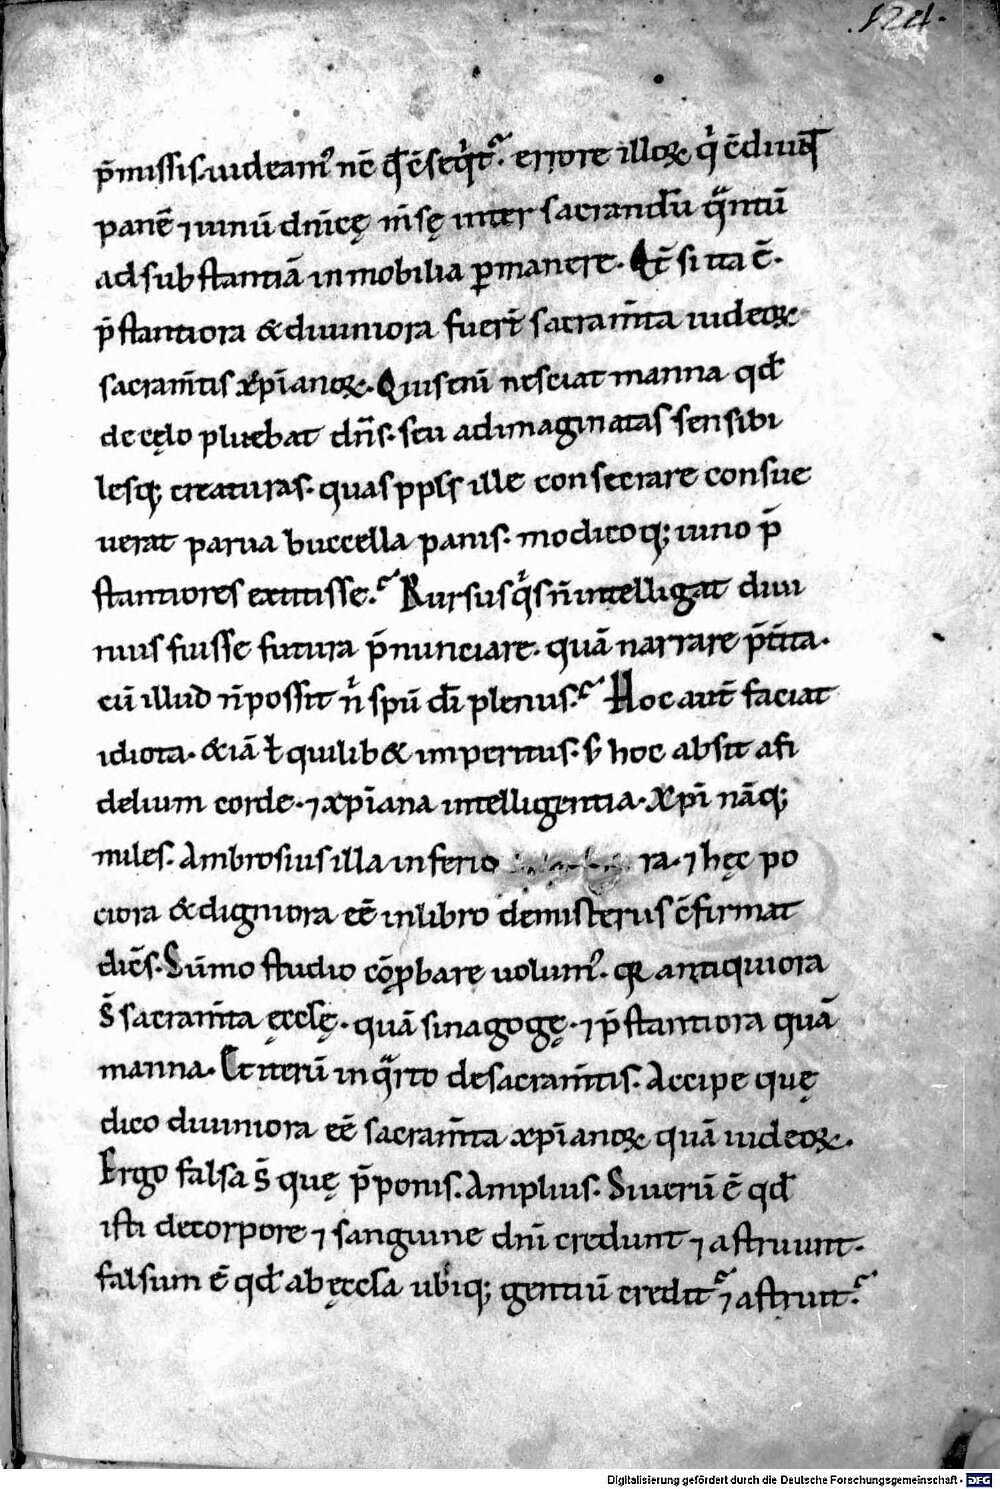 .121.
p̄missis. uideam᷒ nē q̄ ē seq̇t᷑. errore illoꝝ q̇ ē diuiq̄
panē ⁊ uinū dn̄icę m̄sę inter sacrandū qͣntū
ad substantiā inmobilia ꝑmanere. Qt̄ si ita ē.
p̄stantiora & diuiniora fuer̄t sacram̄ta iudeoꝝ
sacram̄tis xp̄ianoꝝ. Quis eni nesciat manna qđ
de cęlo pluebat dn̄s. seu ad imaginatas sensibi
lesq; creaturas. quas ppl̄s ille consecrare consue
uerat parua buccella panis. modicoq; uino p̄
stantiores extitisse. Rursus q̇s n̄ intelligat diui
nius fuisse futura p̄nunciare. quā narrare p̄t̄ita.
cū illud n̄ possit n̄ spū dī plenus. Hoc aut̄ faciat
idiota. & iā ł quilib& imperitus. s; hoc absit a fi
delium corde. ⁊ xp̄iana intelligentia. Xp̄i nāq;
miles. Ambrosius illa inferio ra. ⁊ hęc po
ciora & digniora eē in libro de misteriis c̄firmat
dic̄s. Sūmo studio cōꝓbare uolum᷒. qꝛ antiquiora
s̄ sacram̄ta ęccl̄ę. quā sinagogę. ⁊ p̄stantiora quā
manna. Et iterū in qͣrto de sacram̄tis. Accipe quę
dico diuiniora eē sacram̄ta xp̄ianoꝝ quā iudeoꝝ.
Ergo falsa s̄ quę p̄ponis. Amplius. Si uerū ē qđ
isti de corpore ⁊ sanguine dn̄i credunt ⁊ astruunt.
falsum ē qđ ab ęccl̄a ubiq; gentiū credit᷑ ⁊ astruit᷑.
Digitalisierung gefördert durch die Deutsche Forschungsgemeinschaft - DFG